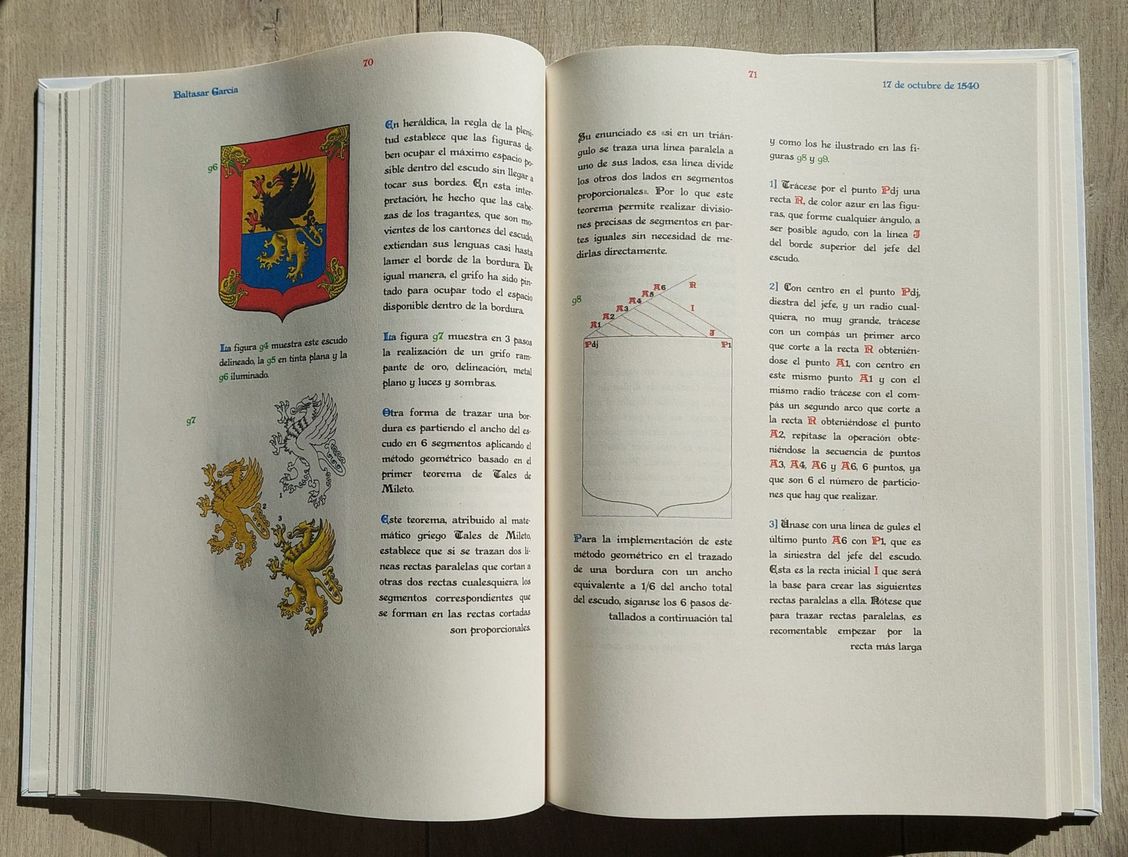 70
Baltasar García
g6
La figura g4 muestra este escudo
delineado, la g5 en tinta plana y la
g6 iluminado.
g7
1
2
3
En heráldica, la regla de la pleni-
tud establece que las figuras de-
ben ocupar el máximo espacio po-
sible dentro del escudo sin llegar a
tocar sus bordes. En esta inter-
pretación, he hecho que las cabe-
zas de los tragantes, que son mo-
vientes de los cantones del escudo,
extiendan sus lenguas casi hasta
lamer el borde de la bordura. De
igual manera, el grifo ha sido pin-
tado para ocupar todo el espacio
disponible dentro de la bordura.
La figura g7 muestra en 3 pasos
la realización de un grifo ram-
pante de oro, delineación, metal
plano y luces y sombras.
Otra forma de trazar una bor-
dura es partiendo el ancho del es-
cudo en 6 segmentos aplicando el
método geométrico basado en el
primer teorema de Tales de
Mileto.
Este teorema, atribuido al mate-
mático griego Tales de Mileto,
establece que si se trazan dos lí-
neas rectas paralelas que cortan a
otras dos rectas cualesquiera, los
segmentos correspondientes que
se forman en las rectas cortadas
son proporcionales.
71
17 de octubre de 1540
Su enunciado es «si en un trián-
gulo se traza una línea paralela a
uno de sus lados, esa línea divide
los otros dos lados en segmentos
proporcionales». Por lo que este
teorema permite realizar divisio-
nes precisas de segmentos en par-
tes iguales sin necesidad de me-
dirlas directamente.
g8
A1 A2 A3 A4 A5 A6 R
I
J
Pdj P1
Para la implementación de este
método geométrico en el trazado
de una bordura con un ancho
equivalente a 1/6 del ancho total
del escudo, síganse los 6 pasos de-
tallados a continuación tal
y como los he ilustrado en las fi-
guras g8 y g9.
1] Trácese por el punto Pdj una
recta R, de color azur en las figu-
ras, que forme cualquier ángulo, a
ser posible agudo, con la línea J
del borde superior del jefe del
escudo.
2] Con centro en el punto Pdj,
diestra del jefe, y un radio cual-
quiera, no muy grande, trácese
con un compás un primer arco
que corte a la recta R obtenién-
dose el punto A1, con centro en
este mismo punto A1 y con el
mismo radio trácese con el com-
pás un segundo arco que corte a
la recta R obteniéndose el punto
A2, repítase la operación obte-
niéndose la secuencia de puntos
A3, A4, A6 y A6, 6 puntos, ya
que son 6 el número de particio-
nes que hay que realizar.
3] Únase con una línea de gules el
último punto A6 con P1, que es
la siniestra del jefe del escudo.
Esta es la recta inicial I que será
la base para crear las siguientes
rectas paralelas a ella. Nótese que
para trazar rectas paralelas, es
recomentable empezar por la
recta más larga